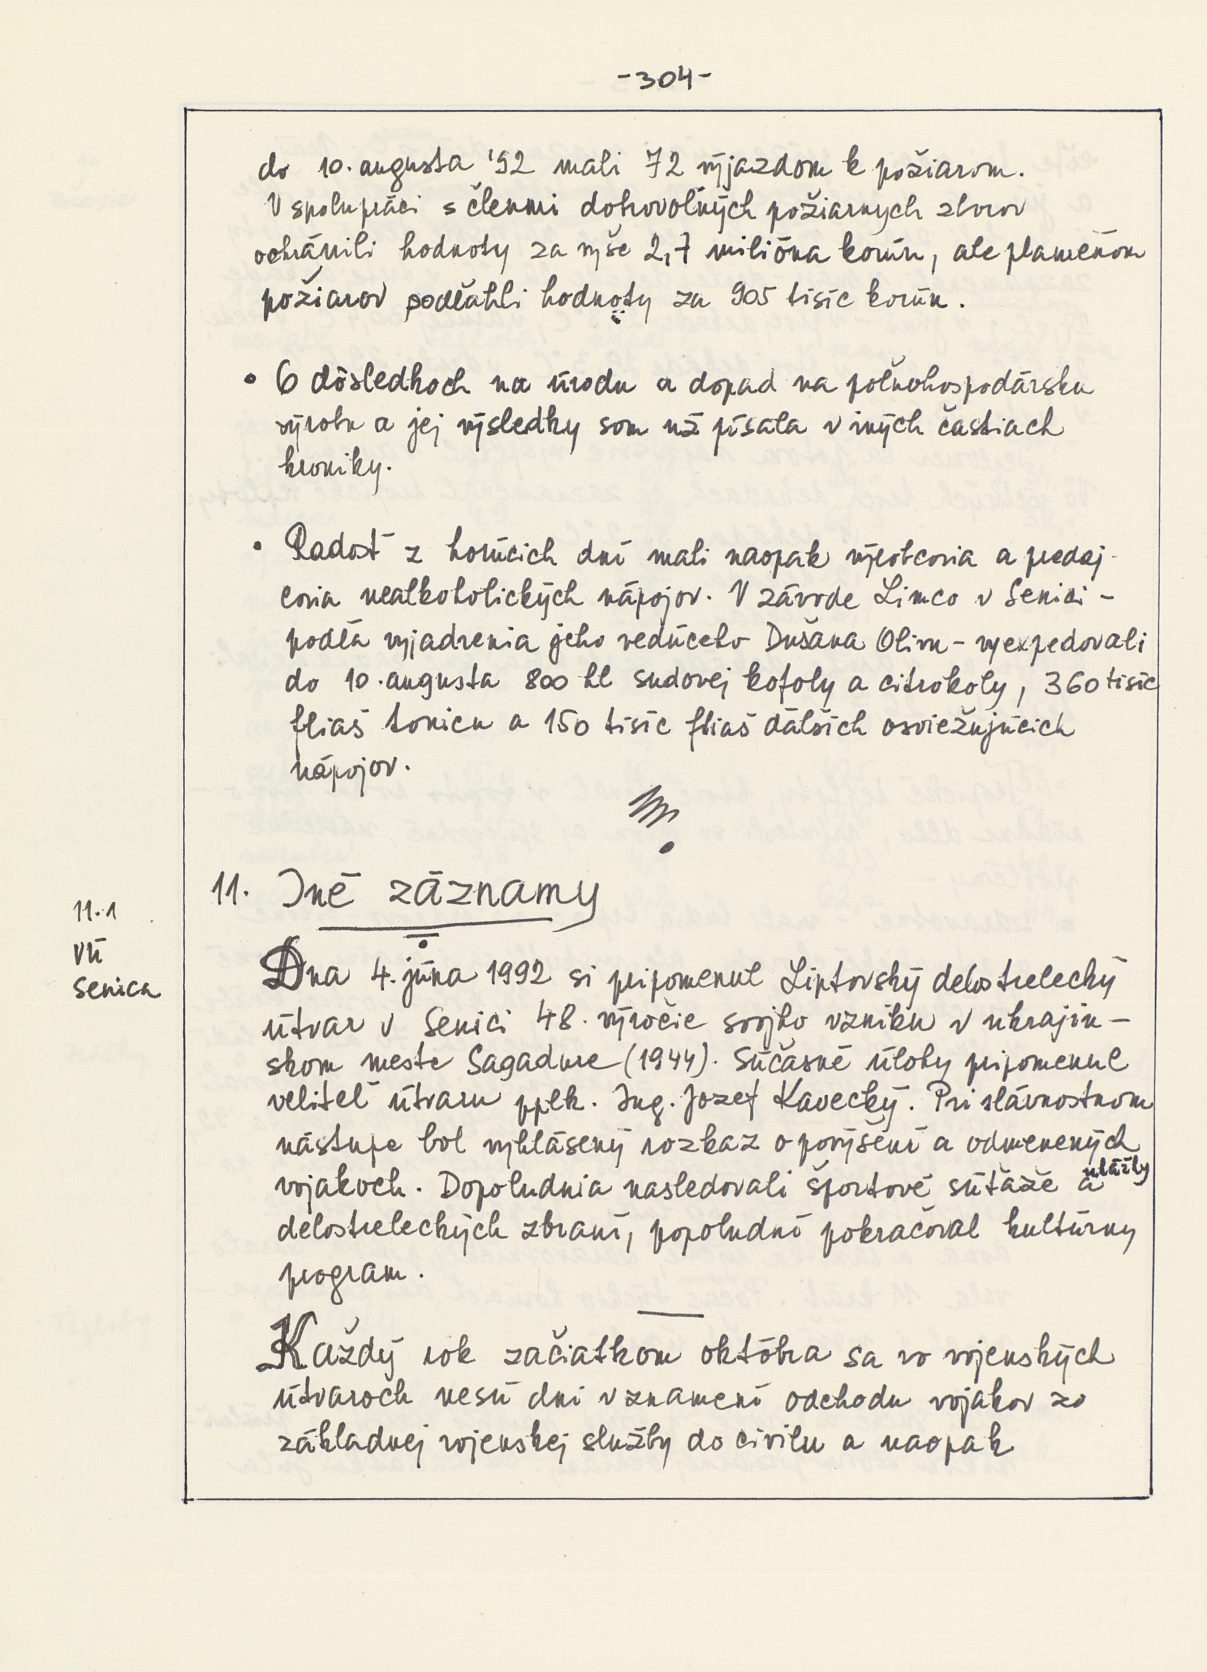 -304-
do 10. augusta '92 mali 72 výjazdom k požiarom.
V spolupráci s členmi dobrovoľných požiarnych zborov
ochránili hodnoty za vyše 2,7 milióna korún, ale plameňom
požiarov podľahli hodnoty za 905 tisíc korún.
• O dôsledkoch na úrodu a dopad na poľnohospodársku
výrobu a jej výsledky som už písala v iných častiach
kroniky.
• Radosť z horúcich dní mali naopak výrobcovia a predaj-
covia nealkoholických nápojov. V závode Limco v Senici -
podľa vyjadrenia jeho vedúceho Dušana Olivu - vyexpedovali
do 10. augusta 800 hl sudovej kofoly a citrokoly, 360 tisíc
fliaš tonicu a 150 tisíc fliaš ďalších osviežujúcich
nápojov.
11. Iné záznamy
11.1
VÚ
Senica
Dňa 4. júna 1992 si pripomenul Liptovský delostrelecký
útvar v Senici 48. výročie svojho vzniku v ukrajin-
skom meste Sagadure (1944). Súčasné úlohy pripomenul
veliteľ útvaru pplk. Ing. Jozef Kavecký. Pri slávnostnom
nástupe bol vyhlásený rozkaz o povýšení a odmenených
vojakoch. Dopoludnia nasledovali športové súťaže a ukážky
delostreleckých zbraní, popoludní pokračoval kultúrny
program.
Každý rok začiatkom októbra sa vo vojenských
útvaroch nesú dni v znamení odchodu vojakov zo
základnej vojenskej služby do civilu a naopak